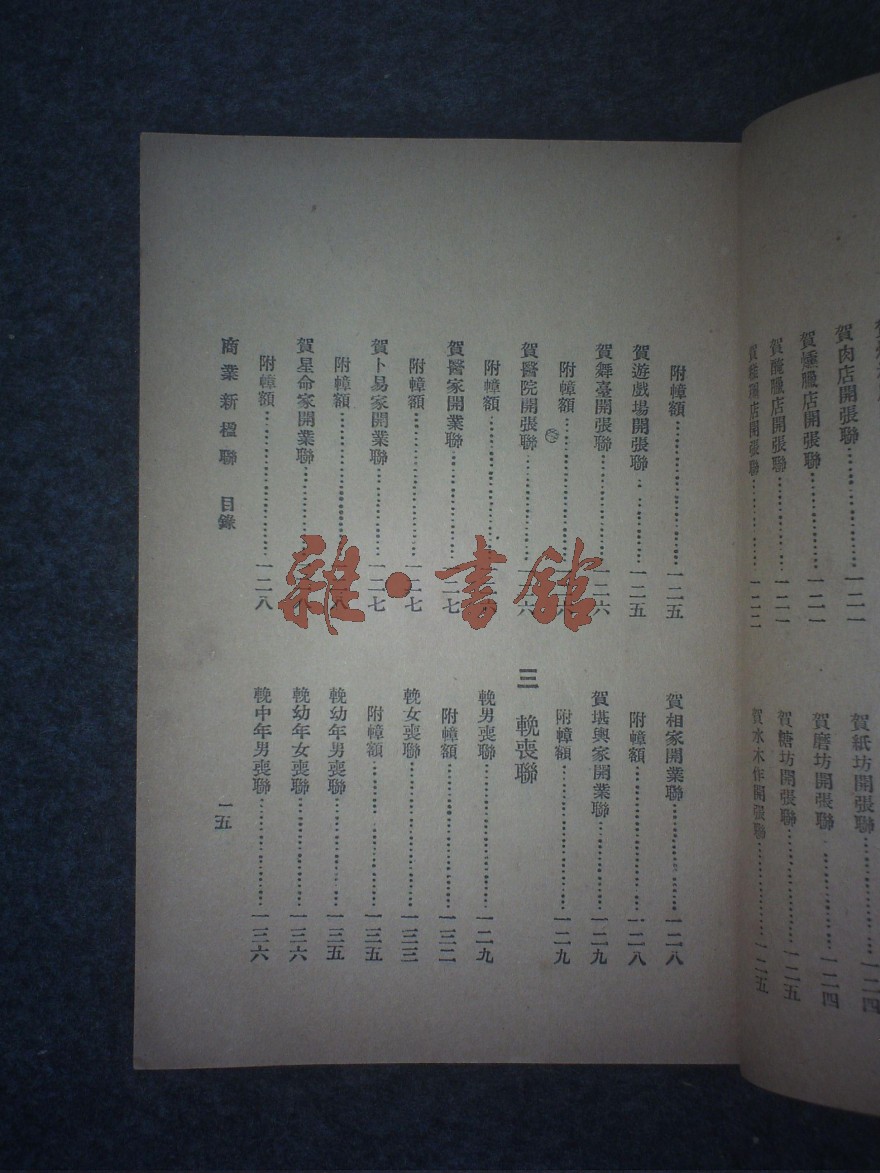 賀肉店開張聯……………一二一
賀燻臘店開張聯……………一二一
賀醃臘店開張聯……………一二一
店開張聯……………一二二
賀紙坊開張聯……………一二四
賀磨坊開張聯……………一二四
賀糖坊開張聯……………一二五
賀水木作開張聯……………一二五
附幛額……………一二五
賀遊戲場開張聯……………一二五
賀舞臺開張聯……………一二六
附幛額……………六
賀醫院開張聯……………一二六
附幛額……………
賀醫家開業聯……………一二七
附幛額……………一二七
賀卜易家開業聯……………一二七
附幛額……………八
賀星命家開業聯……………
附幛額……………一二八
賀相家開業聯……………一二八
附幛額……………一二八
賀堪輿家開業聯……………一二九
附幛額……………一二九
三 輓喪聯
輓男喪聯……………一二九
附幛額……………一三二
輓女喪聯……………一三三
附幛額……………一三五
輓幼年男喪聯……………一三五
輓幼年女喪聯……………一三六
輓中年男喪聯……………一三六
商業新楹聯 目錄
一五
雜·書館